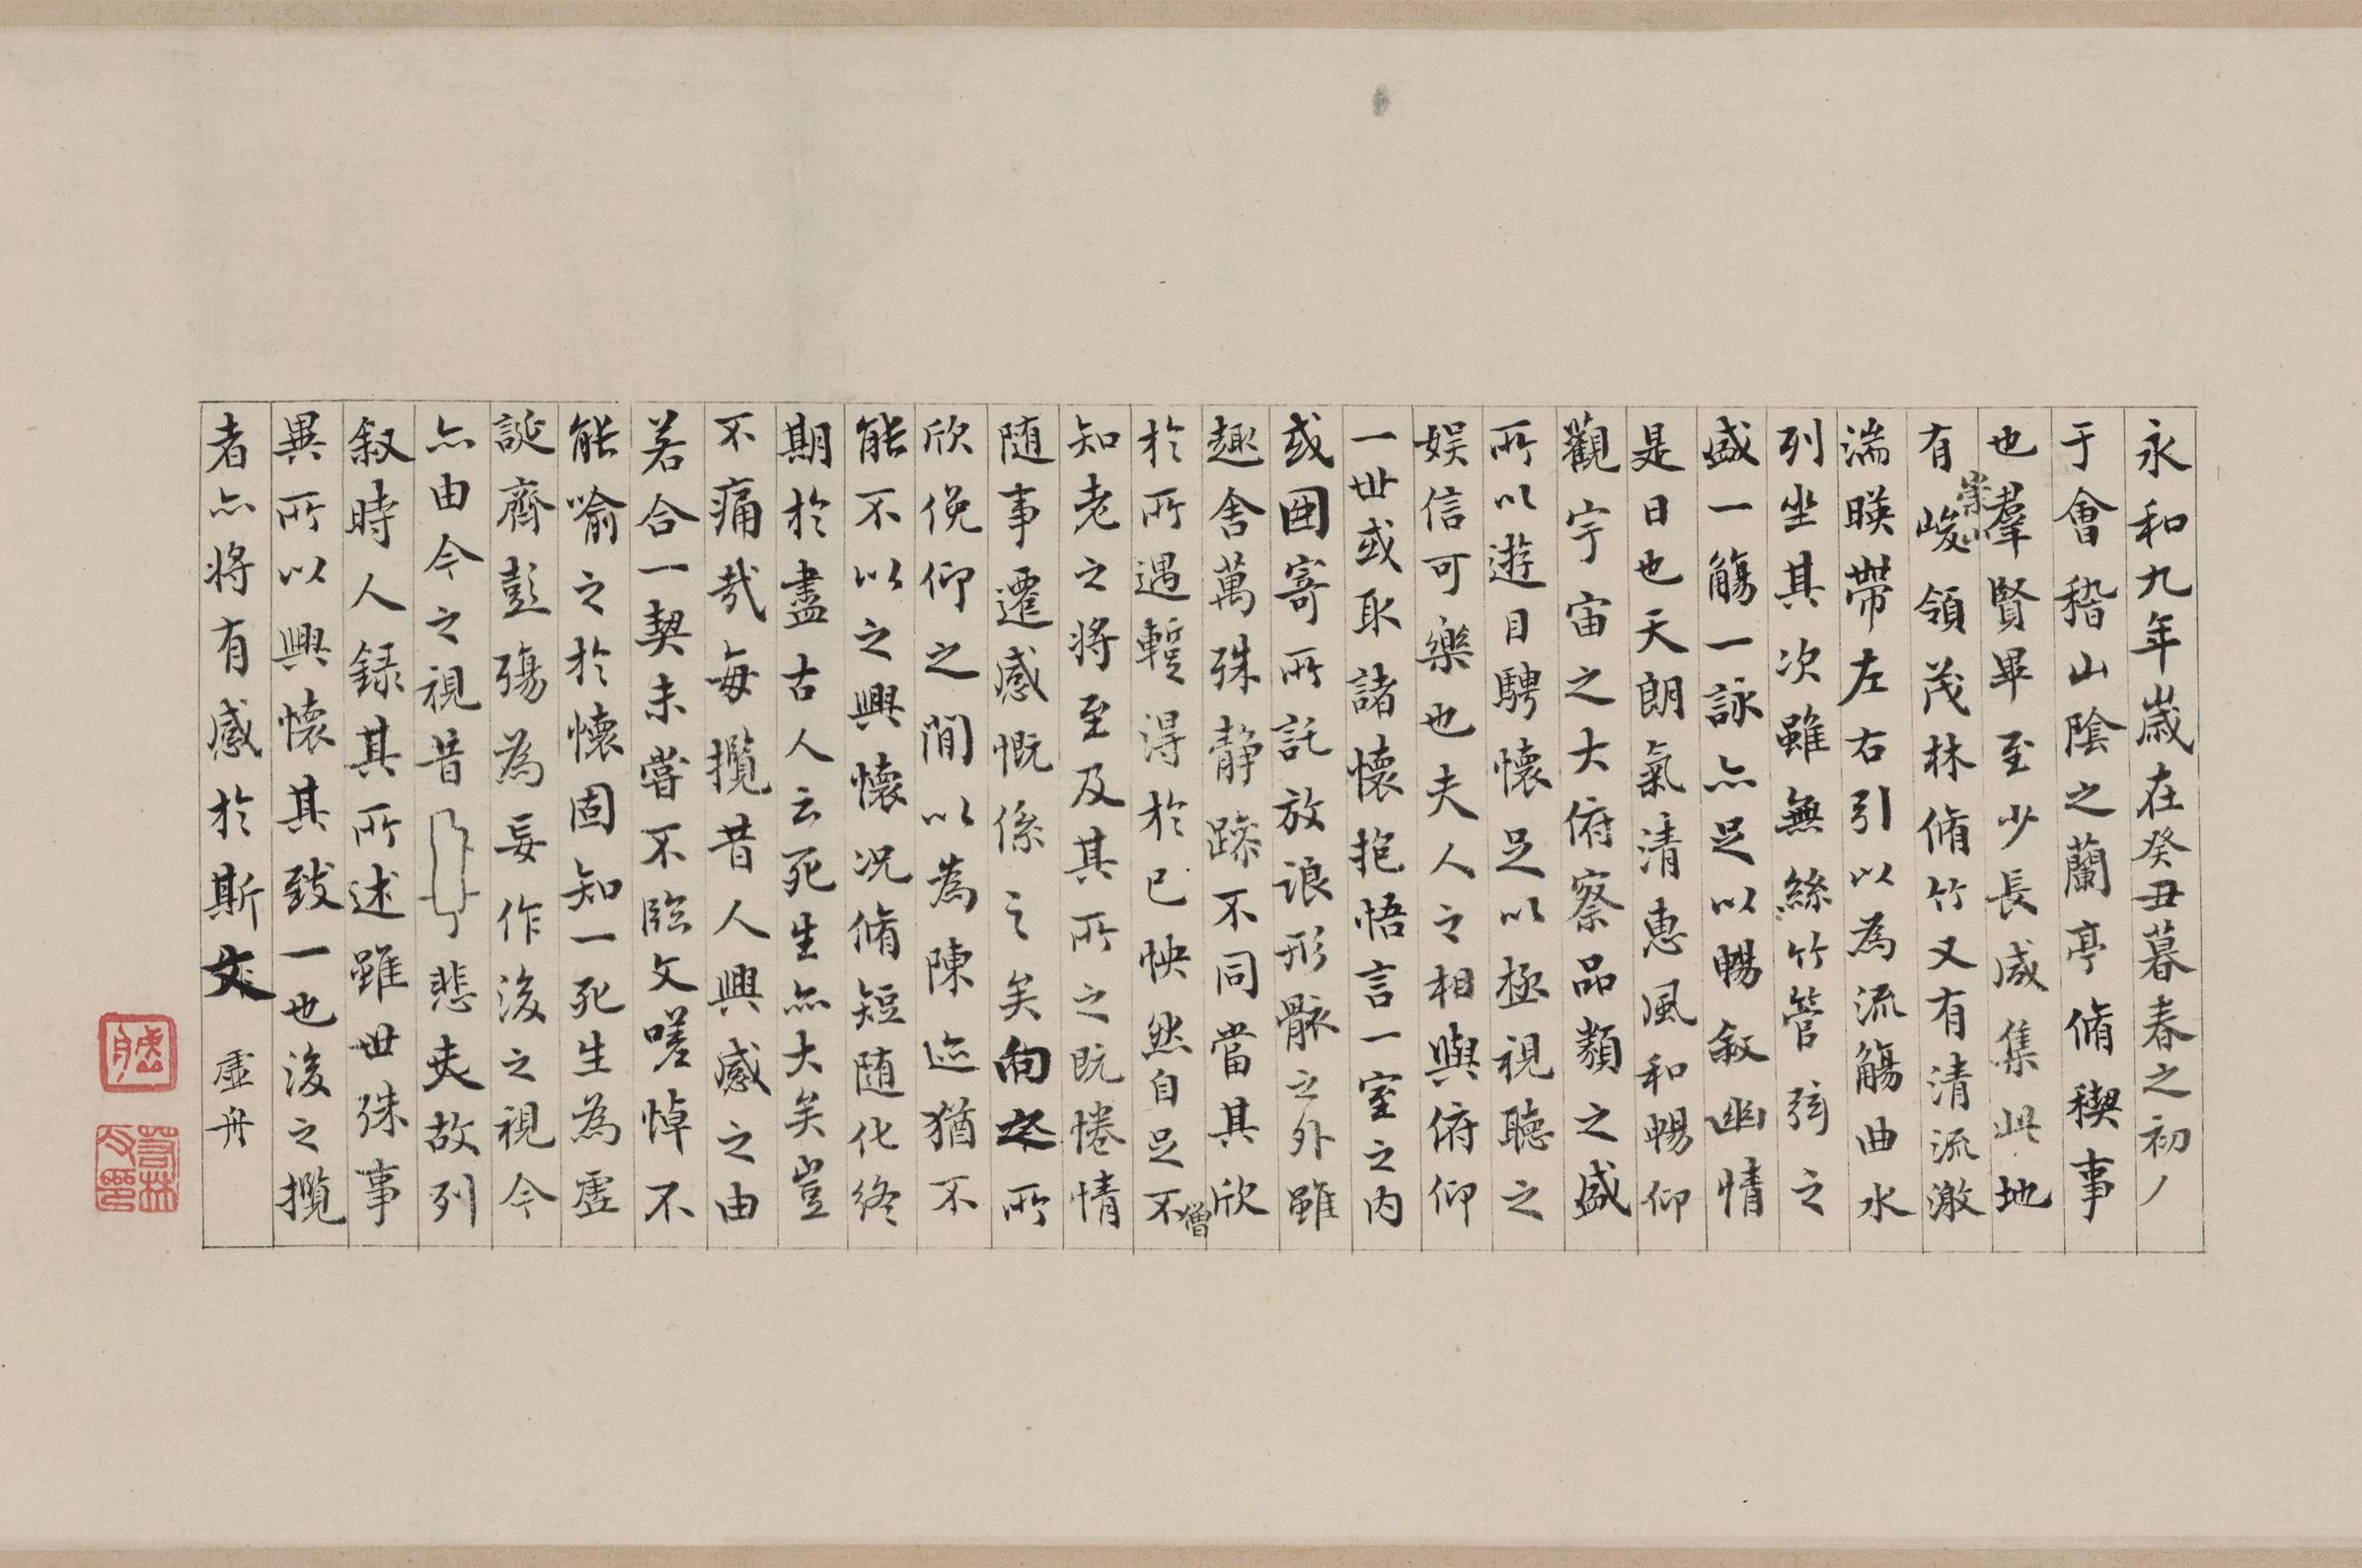 永和九年歲在癸丑暮春之初
于會稽山陰之蘭亭脩稧事
也羣賢畢至少長咸集此地
有崇山峻領茂林脩竹又有清流激
湍暎帶左右引以為流觴曲水
列坐其次雖無絲竹管弦之
盛一觴一詠亦足以暢敘幽情
是日也天朗氣清惠風和暢仰
觀宇宙之大俯察品類之盛
所以遊目騁懷足以極視聽之
娱信可樂也夫人之相與俯仰
一世或取諸懷抱悟言一室之内
或因寄所託放浪形骸之外雖
趣舍萬殊静躁不同當其欣
僧
於所遇蹔得於己怏然自足不
知老之將至及其所之既惓情
随事遷感慨係之矣向之所
欣俛仰之閒以為陳迹猶不
能不以之興懷況脩短随化終
期於盡古人云死生亦大矣豈
不痛哉每攬昔人興感之由
若合一契未嘗不臨文嗟悼不
能喻之於懷固知一死生為虚
誕齊彭殤為妄作後之視今
亦由今之視昔悲夫故列
叙時人録其所述雖世殊事
異所以興懷其致一也後之攬
者亦將有感於斯文 虚舟